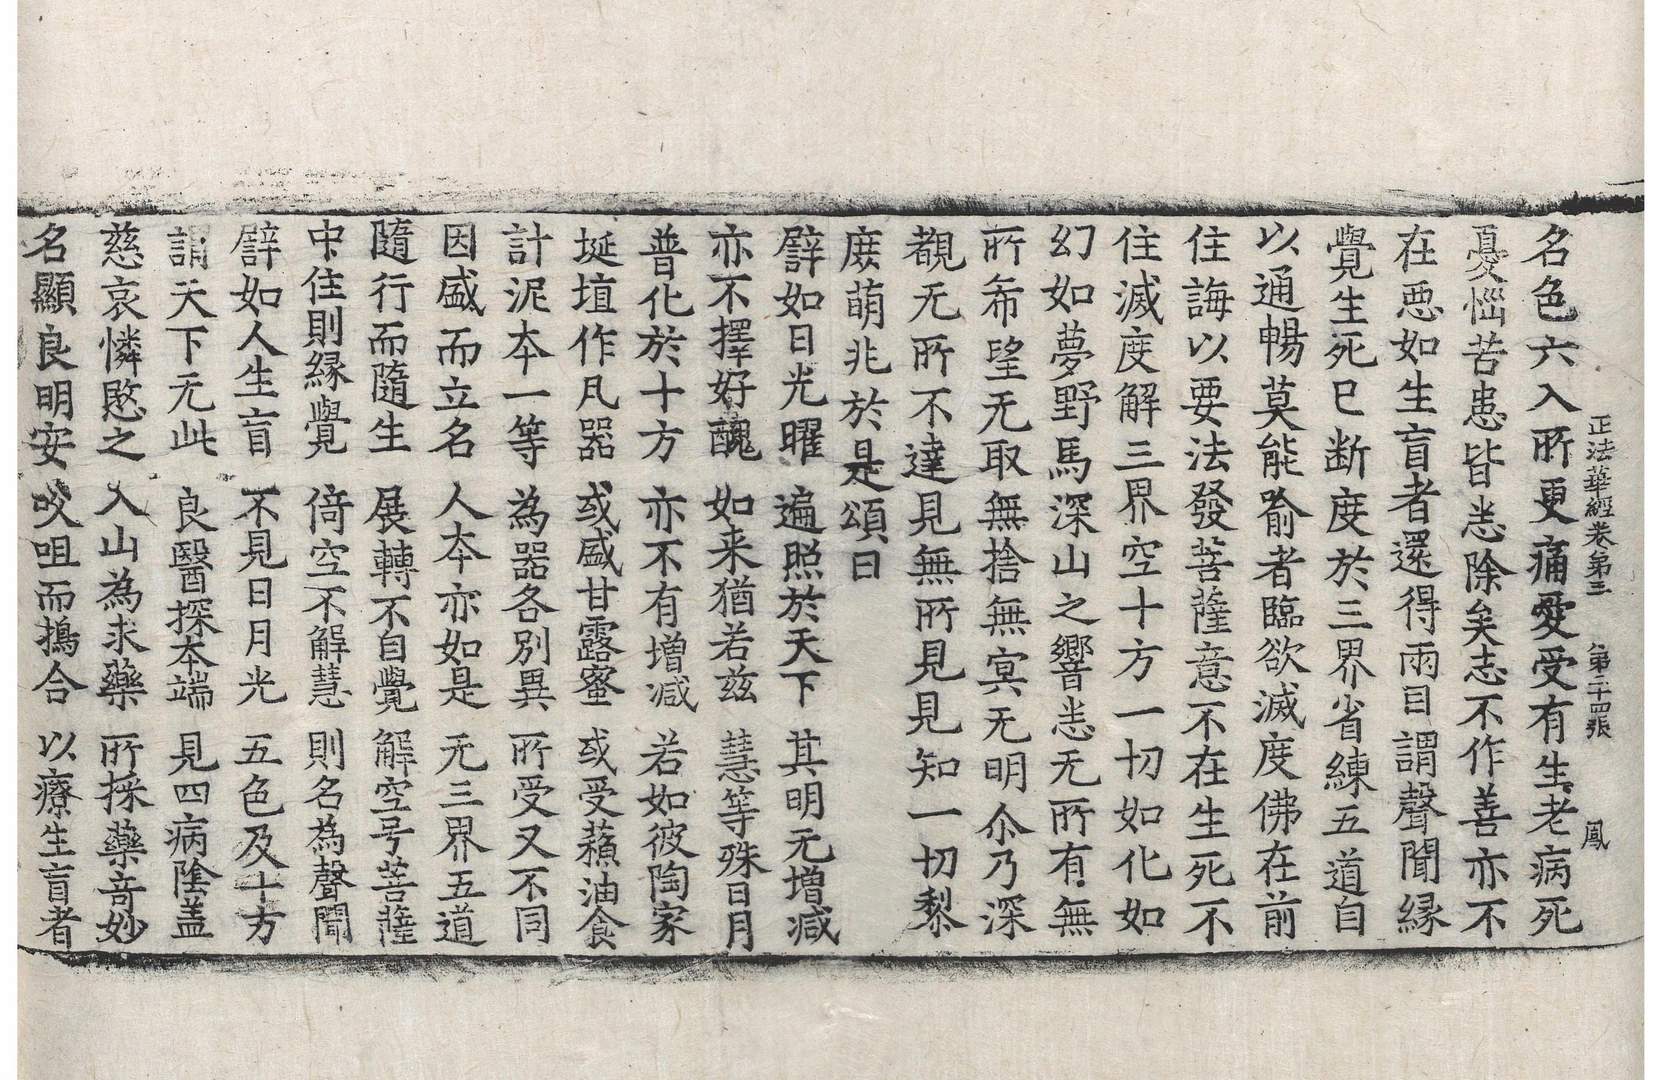 正法華經卷第三　第二十四張　鳳
名色六入所更痛愛受有生老病死
憂惱苦患皆悉除矣志不作善亦不
在惡如生盲者還得兩目謂聲聞緣
覺生死已斷度於三界省練五道自
以通暢莫能喻者臨欲滅度佛在前
住誨以要法發菩薩意不在生死不
住滅度解三界空十方一切如化如
幻如夢野馬深山之響悉无所有無
所希望无取無捨無冥无明尒乃深
覩无所不達見無所見見知一切黎
庶萌兆於是頌曰
譬如日光曜　遍照於天下　其明无增減
亦不擇好醜　如来猶若兹　慧等殊日月
普化於十方　亦不有增減　若如彼陶家
埏埴作凡器　或盛甘露蜜　或受蘓油食
計泥夲一等　為器各別異　所受又不同
因盛而立名　人夲亦如是　无三界五道
隨行而隨生　展轉不自覺　解空号菩薩
中住則緣覺　倚空不解慧　則名為聲聞
譬如人生盲　不見日月光　五色及十方
謂天下无此　良醫探夲端　見四病陰盖
慈哀憐愍之　入山為求藥　所採藥竒妙
名顯良明安　㕮咀而擣合　以療生盲者